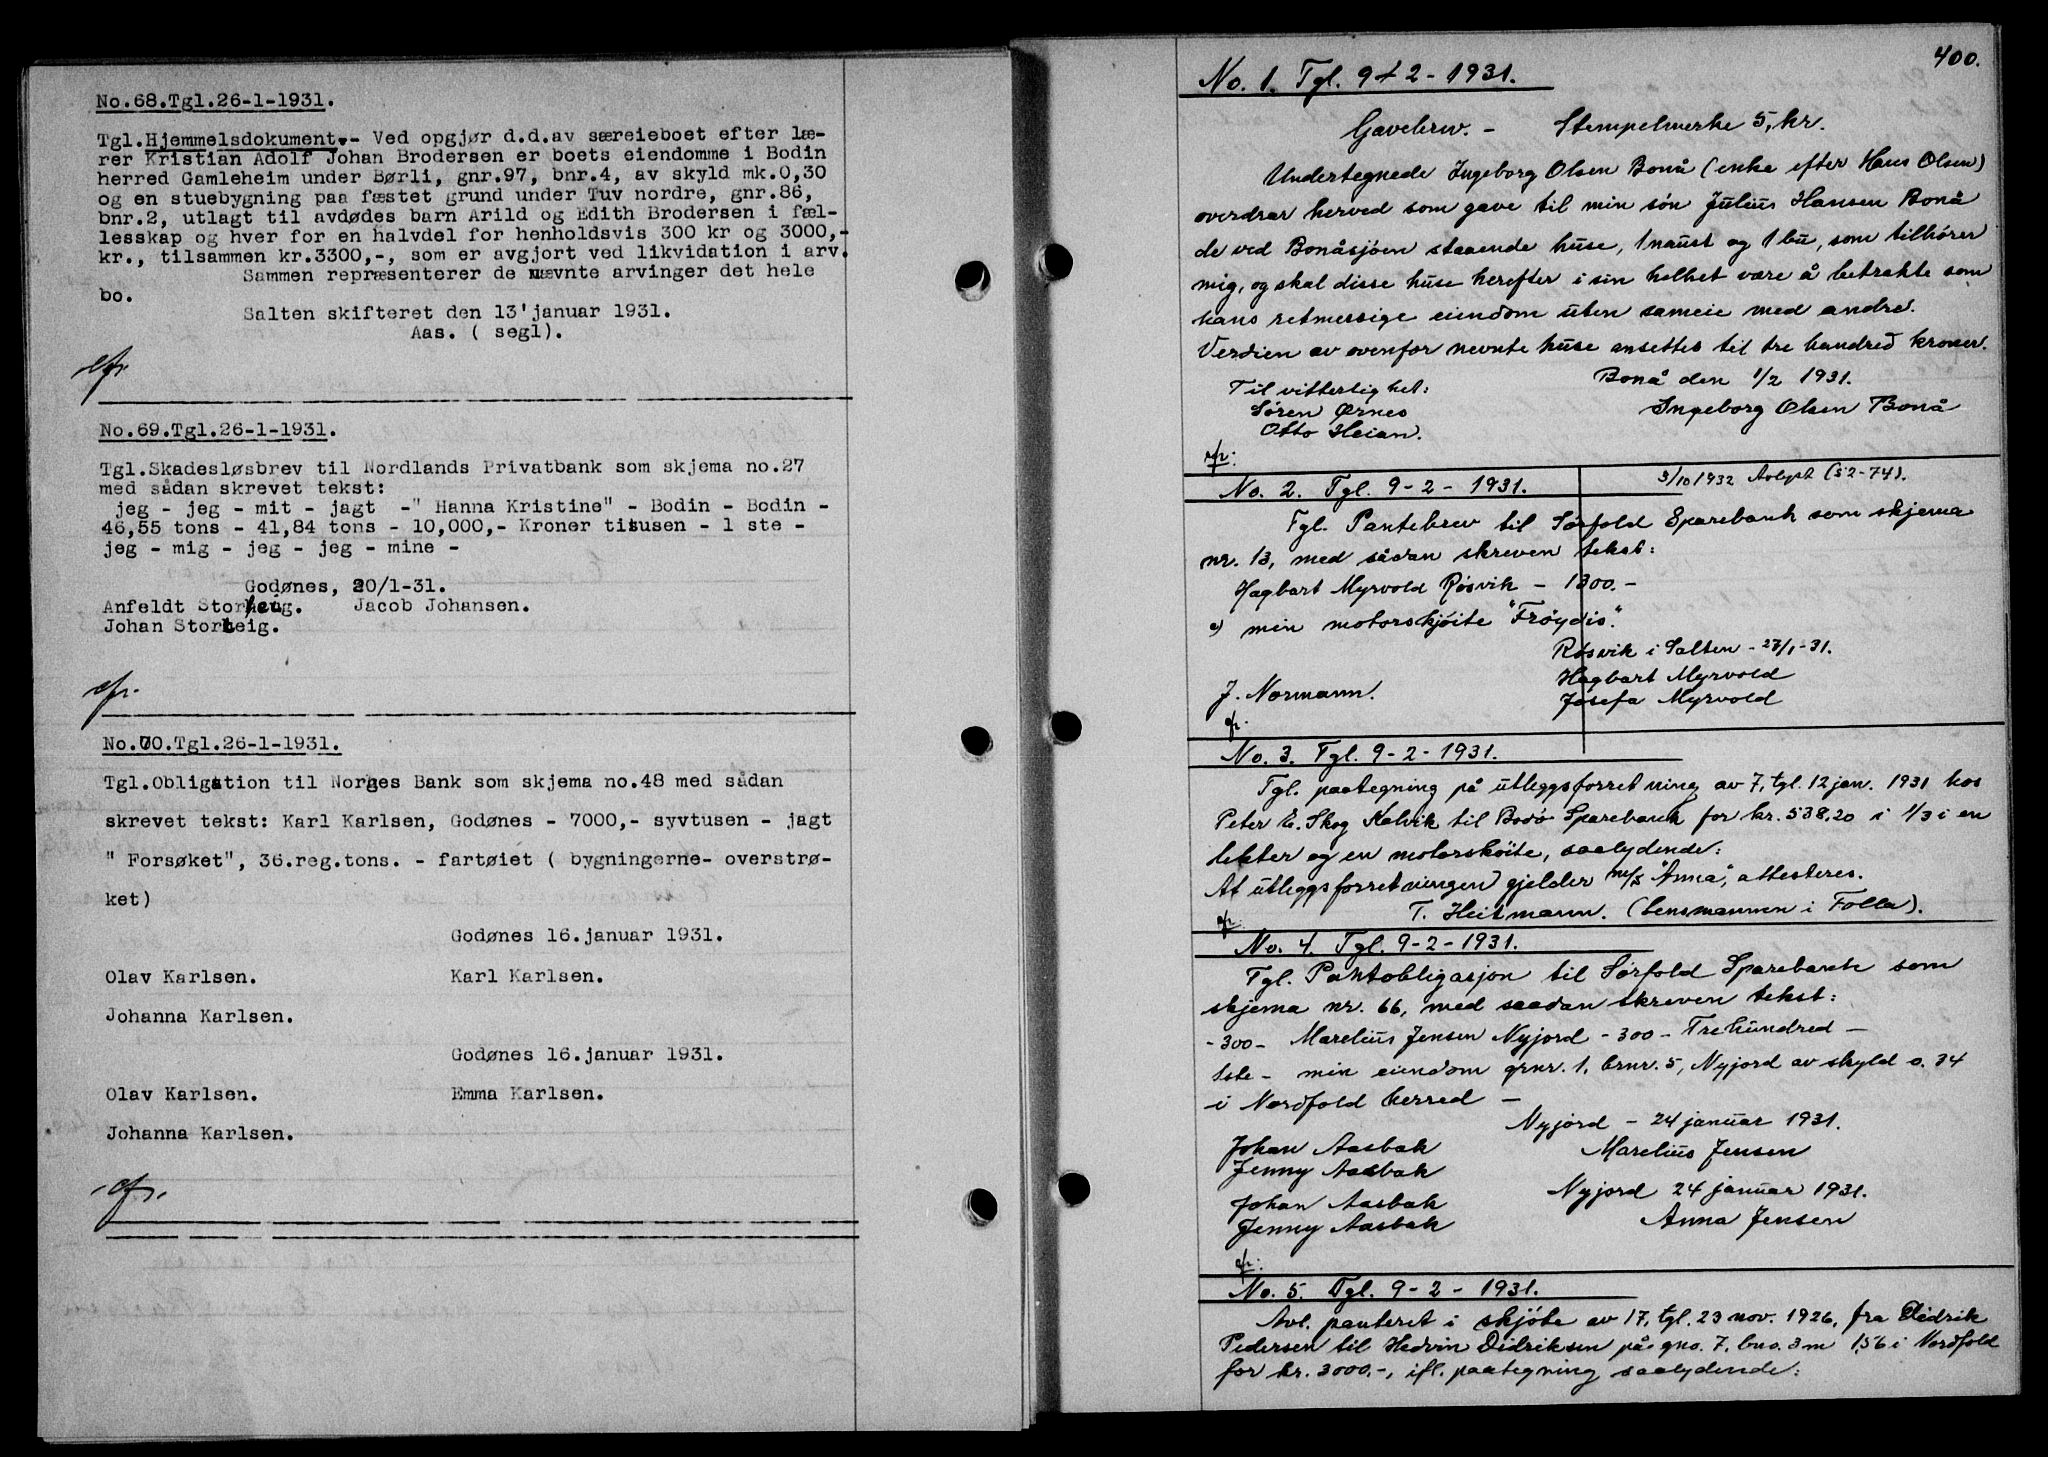 No.68.Tgl.26-1-1931.
Tgl.Hjemmelsdokument.- Ved opgjør d.d.av særeieboet efter læ-
rer Kristian Adolf Johan Brodersen er boets eiendomme i Bodin
herred Gamleheim under Børli, gnr.97, bnr.4, av skyld mk.0,30
og en stuebygning paa fæstet grund under Tuv nordre, gnr.86,
bnr.2, utlagt til avdødes barn Arild og Edith Brodersen i fæl-
lesskap og hver for en halvdel for henholdsvis 300 kr og 3000,-
kr., tilsammen kr.3300,-, som er avgjort ved likvidation i arv.
Sammen repræsenterer de nævnte arvinger det hele
bo.
Salten skifteret den 13'januar 1931.
Aas. ( segl).
cfr.
No.69.Tgl.26-1-1931.
Tgl.Skadesløsbrev til Nordlands Privatbank som skjema no.27
med sådan skrevet tekst:
jeg - jeg - mit - jagt -" Hanna Kristine" - Bodin - Bodin -
46,55 tons - 41,84 tons - 10,000,- Kroner titusen - 1 ste -
jeg - mig - jeg - jeg - mine -
Godønes, 20/1-31.
Anfeldt Storleig. Jacob Johansen.
Johan Storleig.
cfr.
No.70.Tgl.26-1-1931.
Tgl.Obligation til Norges Bank som skjema no.48 med sådan
skrevet tekst: Karl Karlsen, Godønes - 7000,- syvtusen - jagt
" Forsøket", 36.reg.tons. - fartøiet ( bygningerne- overstrø-
ket)
Godønes 16.januar 1931.
Olav Karlsen. Karl Karlsen.
Johanna Karlsen.
Godønes 16.januar 1931.
Olav Karlsen. Emma Karlsen.
Johanna Karlsen.
cfr.
400.
No. 1. Tgl. 9-2-1931.
Gavebrev. - Stempelmerke 5, kr.
Undertegnede Ingeborg Olsen Bonå (enke efter Hans Olsen)
overdrar herved som gave til min søn Julius Hansen Bonå
de ved Bonåsjøen staaende huse, 1 naust og 1 bu, som tilhører
mig, og skal disse huse herefter i sin helhet være å betrakte som
hans retmessige eiendom uten sameie med andre.
Verdien av ovenfor nevnte huse ansettes til tre hundred kroner.
Bonå den 1/2 1931.
Til vitterlighet:
Søren Ørnes Ingeborg Olsen Bonå
Otto Heian.
cfr:
3/10 1932 Avlyst (52-74).
No. 2. Tgl. 9-2-1931.
Tgl. Pantebrev til Sørfold Sparebank som skjema
nr. 13, med sådan skreven tekst:
Hagbart Myrvold Røsvik - 1300.-
min motorskjøite "Frøydis".
Røsvik i Salten - 27/1-31.
Hagbart Myrvold
J. Normann. Josefa Myrvold
cfr.
No. 3. Tgl. 9-2-1931.
Tgl. paategning på utleggsforretning av 7, tgl. 12 jan. 1931 hos
Peter E. Skog Kalvik til Bodø Sparebank for kr. 538,20 i 1/3 i en
lekter og en motorskøite, saalydende:
At utleggsforretningen gjelder m/s "Anna", attesteres.
T. Heitmann. (lensmannen i Folla).
cfr.
No. 4. Tgl. 9-2-1931.
Tgl. Pantobligasjon til Sørfold Sparebank som
skjema nr. 66, med saadan skreven tekst:
-300- Marelius Jensen Nyjord -300- Trehundred -
1ste - min eiendom grnr. 1, brnr. 5, Nyjord av skyld 0.34
i Nordfold herred -
Nyjord - 24 januar 1931.
Johan Aasbak Marelius Jensen
Jenny Aasbak
Nyjord 24 januar 1931.
Johan Aasbak
Jenny Aasbak Anna Jensen
cfr:
No. 5. Tgl. 9-2-1931.
Avl. panteret i skjøte av 17, tgl. 23 nov. 1926, fra Didrik
Pedersen til Hedvin Didriksen på gno. 7, bno. 3 m 1,56 i Nordfold
for kr. 3000.-, ifl. paategning saalydende: